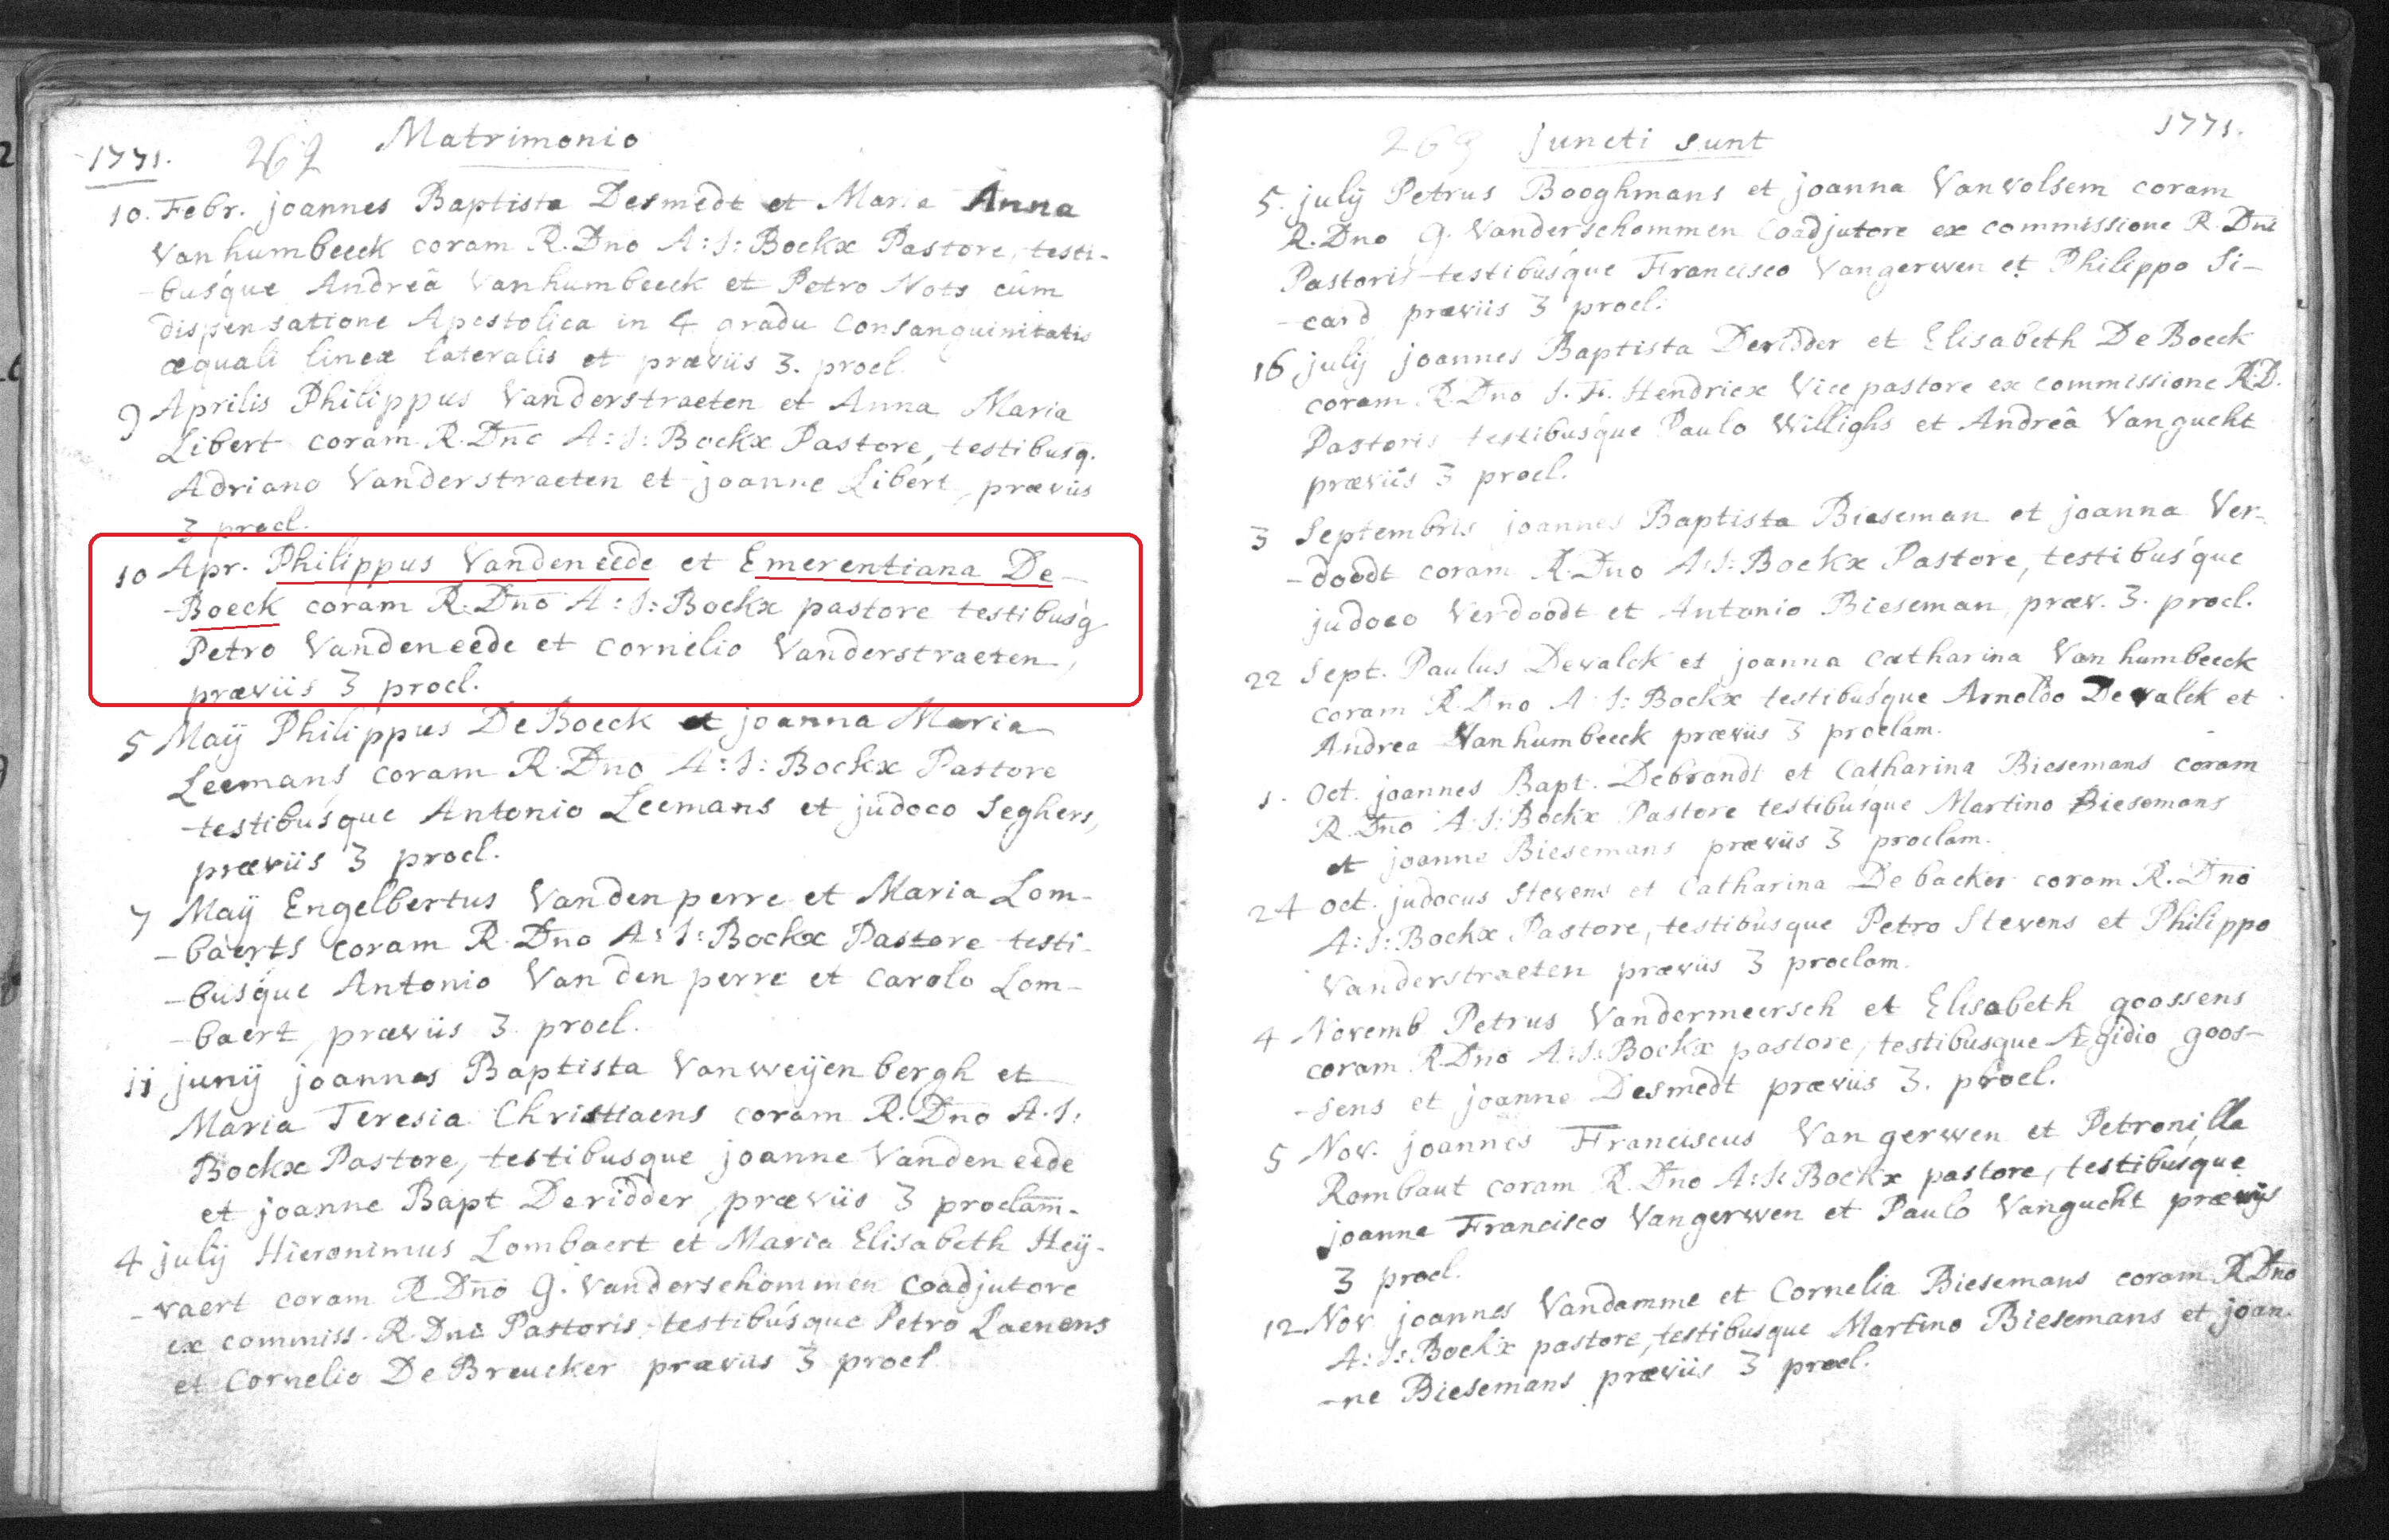 1771. 262 Matrimonio
10. Febr. joannes Baptista Desmedt et Maria Anna
Vanhumbeeck coram R. Dno A: J: Bockx Pastore, testi-
-busque Andreâ Vanhumbeeck et Petro Nots cum
dispensatione Apostolica in 4 gradu Consanguinitatis
æquali lineæ lateralis et præviis 3. procl.
9 Aprilis Philippus Vanderstraeten et Anna Maria
Libert coram R. Dno A: J: Bockx Pastore, testibusq.
Adriano Vanderstraeten et joanne Libert, præviis
3 procl.
10 Apr. Philippus Vandeneede et Emerentiana De-
-Boeck coram R. Dno A: J: Bockx pastore testibusq
Petro Vandeneede et Cornelio Vanderstraeten,
præviis 3 procl.
5 Maÿ Philippus De Boeck et joanna Maria
Leemans coram R. Dno A: J: Bockx Pastore
testibusque Antonio Leemans et judoco Seghers,
præviis 3 procl.
7 Maÿ Engelbertus Vandenperre et Maria Lom-
-baerts coram R. Dno A: J: Bockx Pastore testi-
-busque Antonio Vandenperre et Carolo Lom-
-baert, præviis 3. procl.
11 junÿ joannes Baptista Vanweÿenbergh et
Maria Teresia Christiaens coram R. Dno A. J:
Bockx Pastore, testibusque joanne Vandeneede
et joanne Bapt Deridder, præviis 3 proclam.
4 julÿ Hieronimus Lombaert et Maria Elisabeth Heÿ-
-vaert coram R Dno G. Vanderschommen Coadjutore
ex commiss. R. Dni Pastoris, testibusque Petro Laenens
et Cornelio De Breucker prævus 3 procl
263 juncti sunt 1771.
5. julÿ Petrus Booghmans et joanna Vanvolsem coram
R. Dno G. Vanderschommen Coadjutore ex commissione R. Dni
Pastoris testibusque Francisco Vangerwen et Philippo Si-
-card præviis 3 procl.
16 julÿ joannes Baptista Deridder et Elisabeth De Boeck
coram R. Dno J. F. Hendricx Vice pastore ex commissione R.D.
Pastoris testibusque Paulo Willighs et Andreâ Vangucht
præviis 3 procl.
3 Septembris joannes Baptista Bieseman et joanna Ver-
-doodt coram R. Dno A: J: Bockx Pastore, testibusque
judoco Verdoodt et Antonio Bieseman, præv. 3. procl.
22 Sept. Paulus Dewalck et joanna Catharina Vanhumbeeck
coram R. Dno A J: Bockx testibusque Arnoldo Dewalck et
Andrea Vanhumbeeck præviis 3 proclam.
1. Oct. joannes Bapt. Debrandt et Catharina Biesemans coram
R. Dno A: J: Bockx Pastore testibusque Martino Biesemans
et joanne Biesemans præviis 3 proclam.
24 oct. judocus Stevens et Catharina De backer coram R. Dno
A: J: Bockx Pastore, testibusque Petro Stevens et Philippo
Vanderstraeten præviis 3 proclam.
4 Novemb Petrus Vandermeersch et Elisabeth goossens
coram R. Dno A: J: Bockx pastore, testibusque Ægidio goos-
-sens et joanne Desmedt præviis 3. procl.
5 Nov. joannes Franciscus Van gerwen et Petronilla
Rombaut coram R. Dno A: J: Bockx pastore, testibusque
joanne Francisco Vangerwen et Paulo Vangucht prævijs
3 procl.
12 Nov joannes Vandamme et Cornelia Biesemans coram R Dno
A: J: Bockx pastore, testibusque Martino Biesemans et joan-
-ne Biesemans præviis 3 procl.